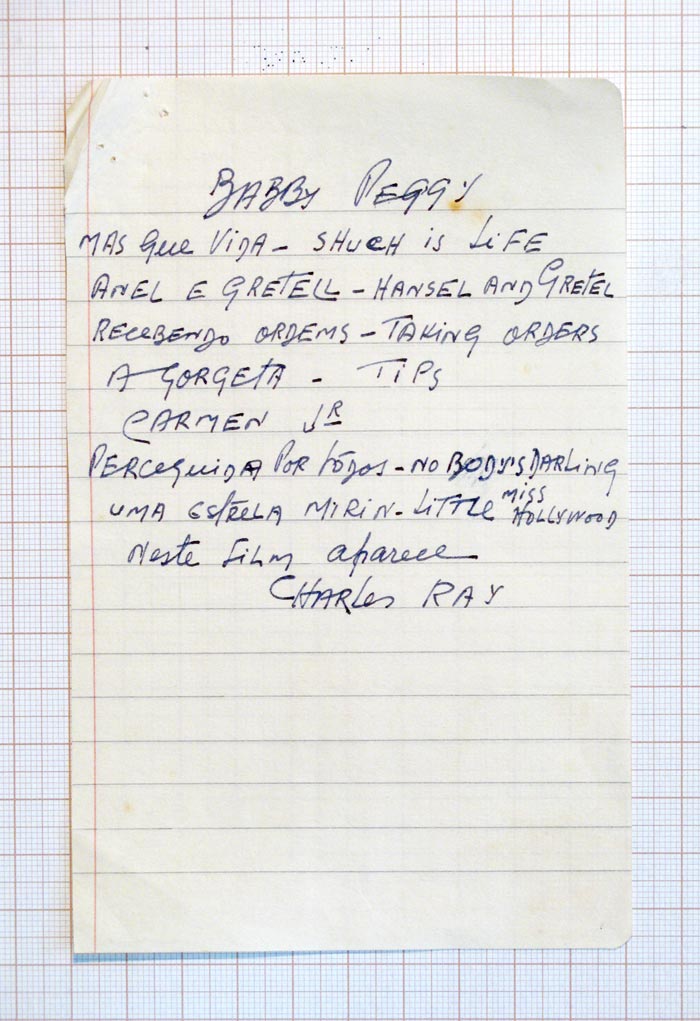 BABBY PEGGY
MAS QUE VIDA - SHUCH is LiFE
ANEL E GRETELL - HANSEL AND GRETEL
RECEBENDO ORDEMS - TAKING ORDERS
A GORGETA - TiPS
CARMEN JR
PERCEGUIDA POR TÓDOS - NO BODY'S DARLING
UMA ESTRELA MIRIN - LITTLE MISS HOLLYWOOD
Neste FILM aparece
CHARLES RAY